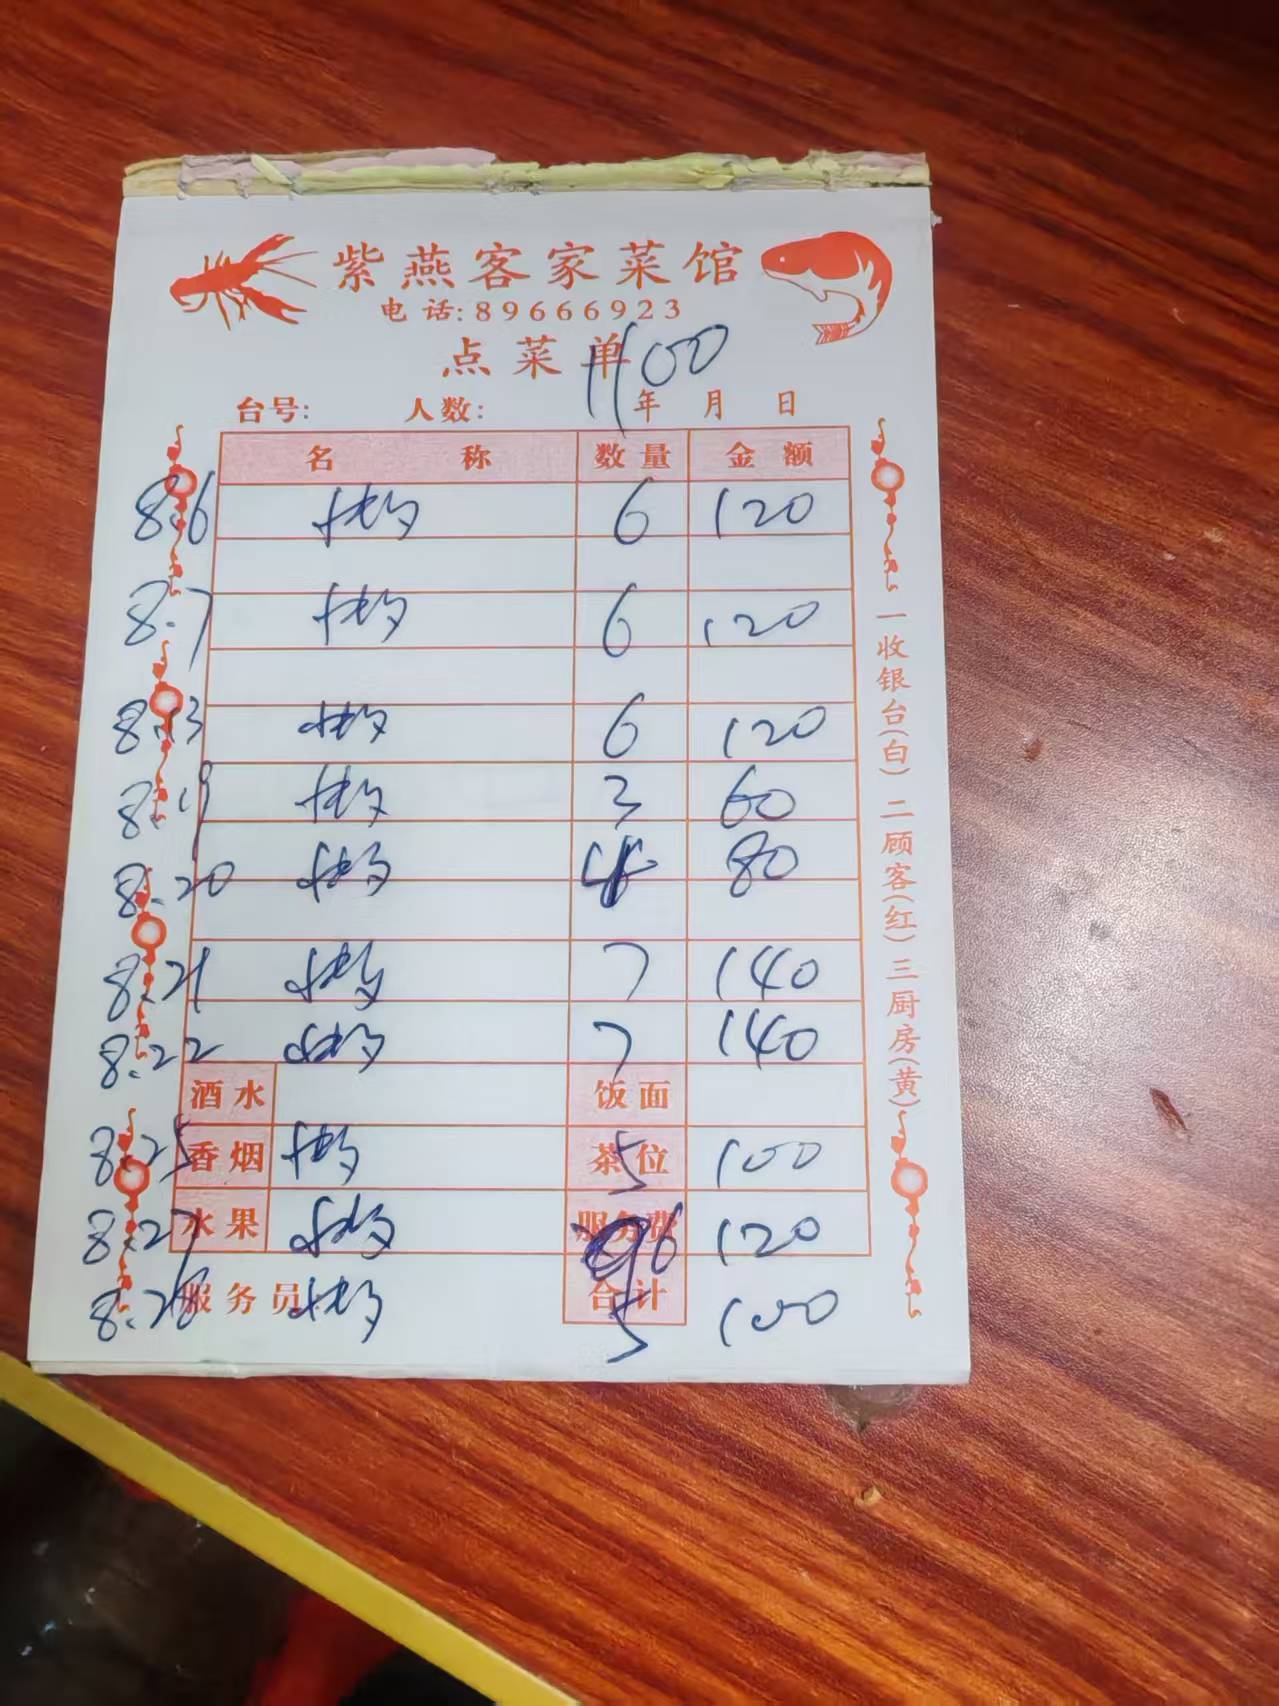 紫燕客家菜馆
电话:89666923
点菜单 1100
台号: 人数: 年 月 日
名称 数量 金额
8.6 6 120
8.7 6 120
8.13 6 120
8.19 3 60
8.20 4 80
8.21 7 140
8.22 7 140
酒水 饭面
8.25 香烟 茶位 5 100
8.27 水果 服务费 6 120
8.28 服务员 合计 5 100
一收银台(白) 二顾客(红) 三厨房(黄)